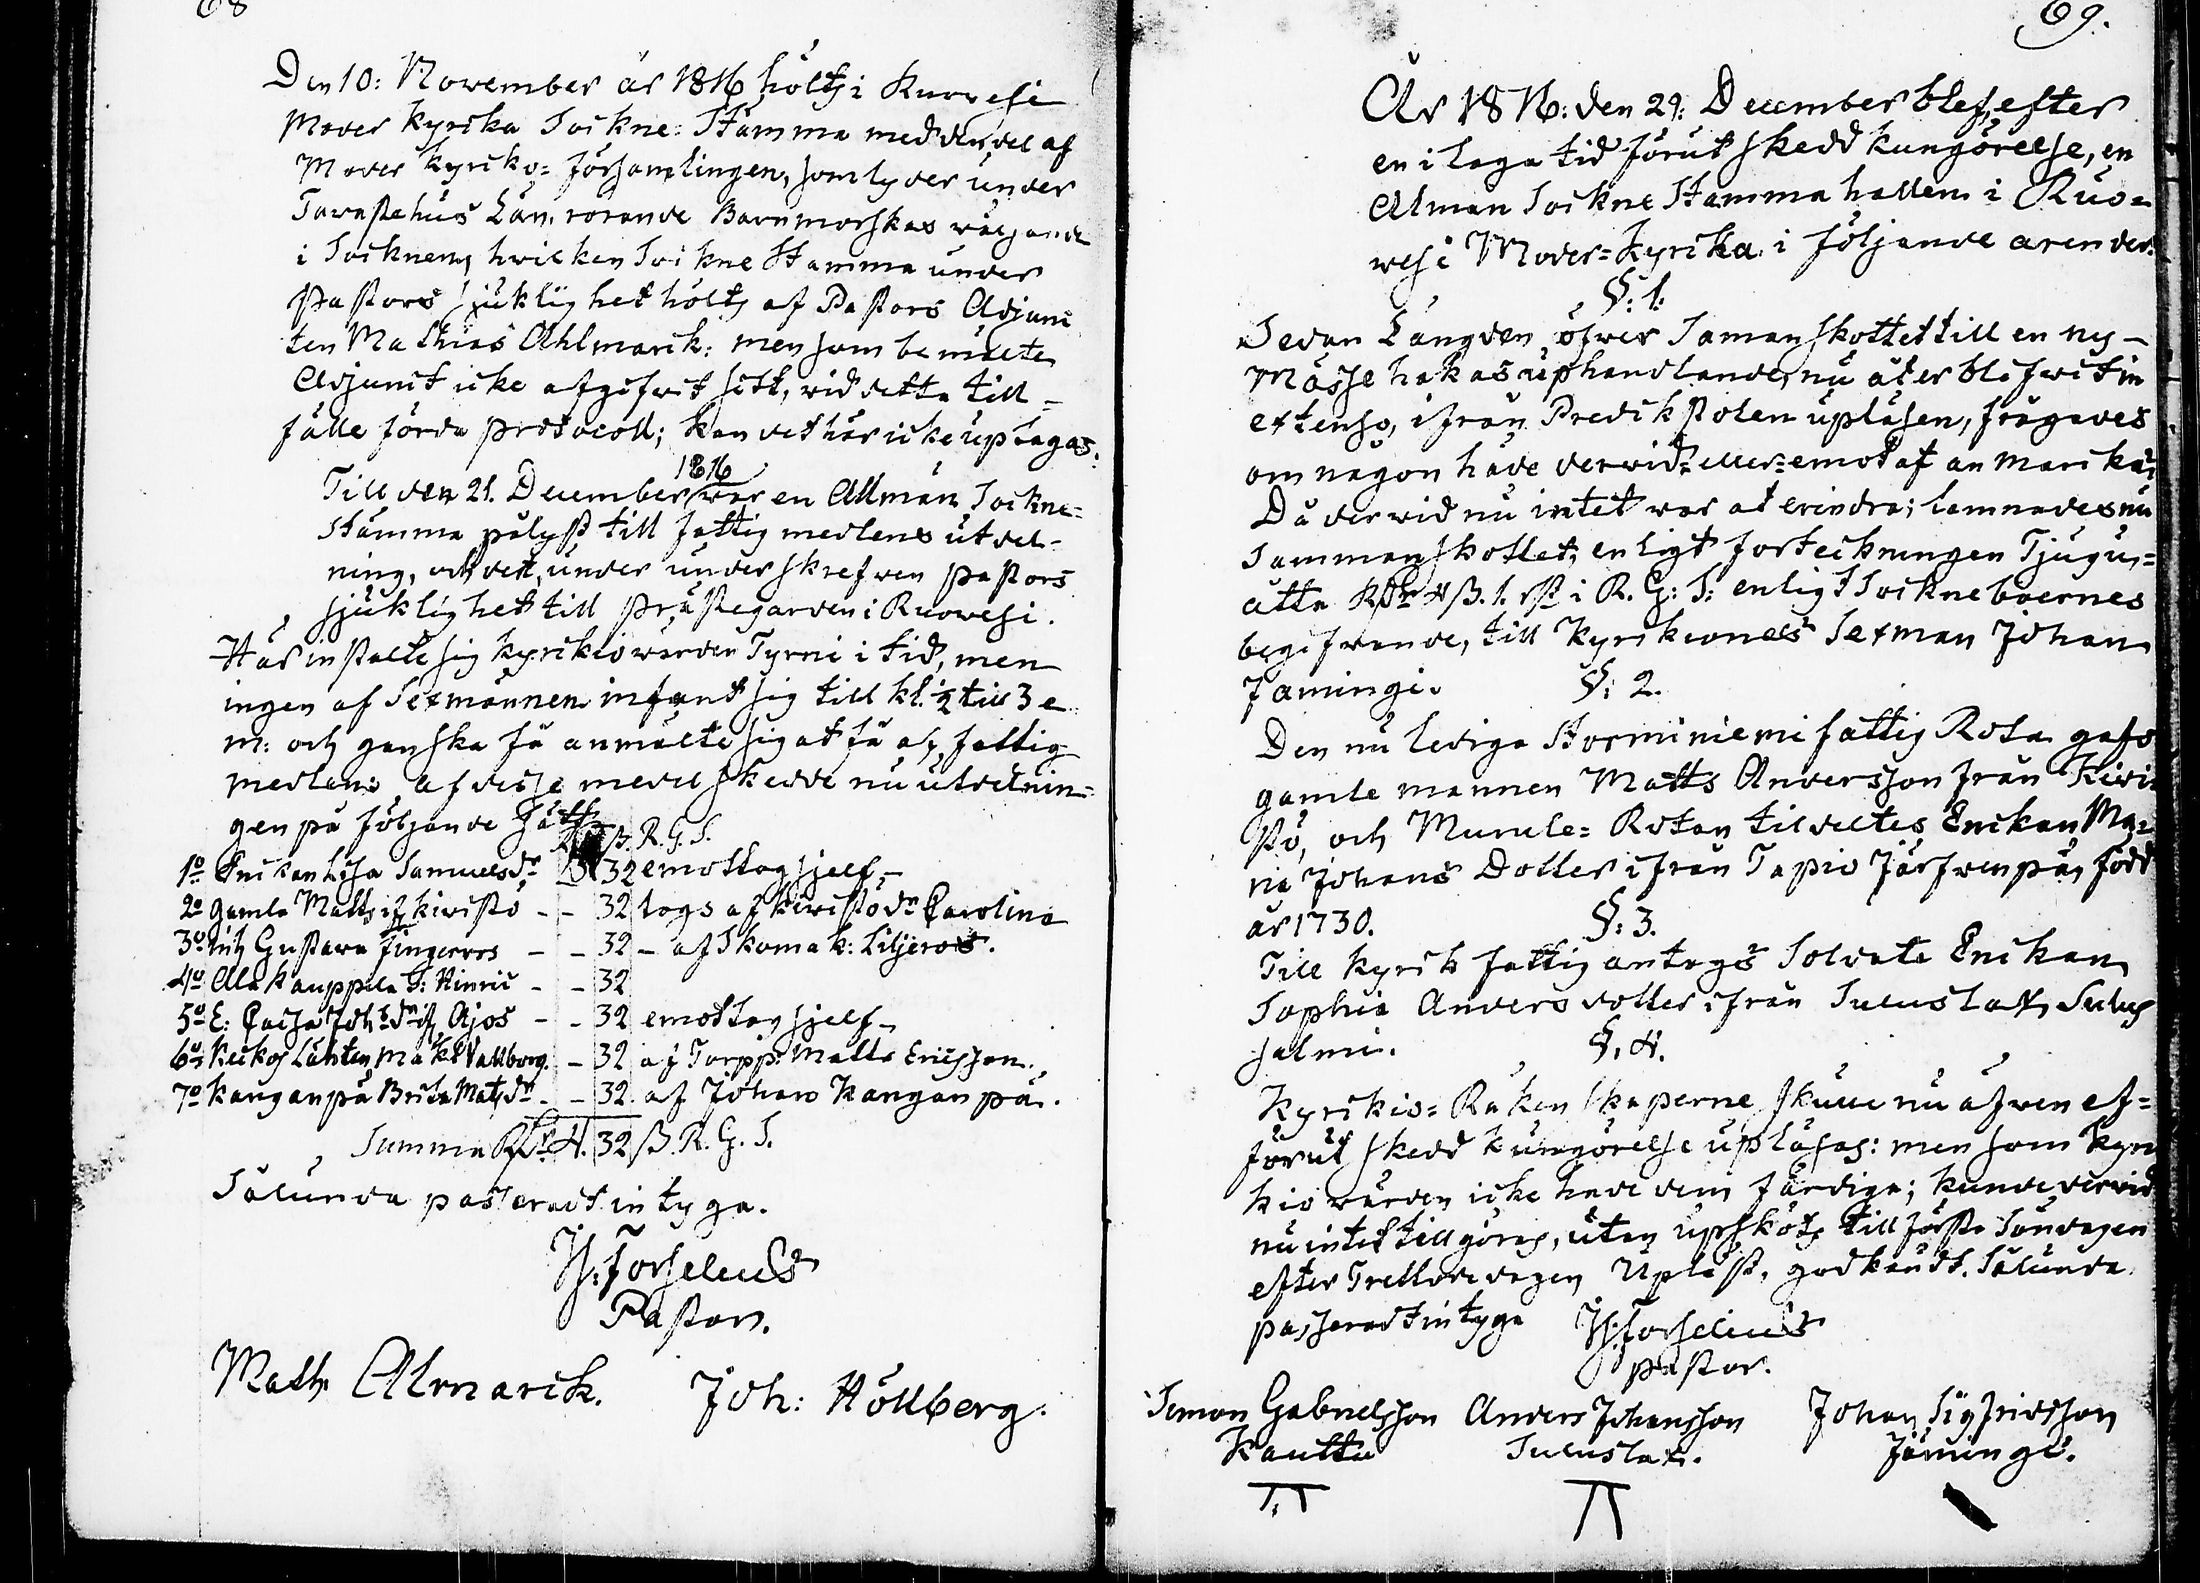 68
Den 10: November år 1816 hölts i Ruovesi
Moder Kyrka Sockne: Stämma med den del af
Moder Kyrko= församlingen, som lyder under
Tavastehus Län, rörande Barnmorskas wäljande
i Socknen, hvilken Sockne Stämma under
Pastors sjuklighet hölts af Pastors Adjunc
ten Mathias Ahlmarck: men som bemälte
Adjunct icke afgifvit sitt, vid detta till-
fälle förda protocoll; kan det här icke uptagas.
1816
Till den 21. December war en Allmän Sockne=
Stämma pålyst till fattig medlens utdel-
ning, och det, under underskrefwen Pastors
sjuklighet till Prästegården i Ruowesi.
Här instälte sig Kyrkiowärden Tyrni i tid, men
ingen af Sexmännen infant sig till kl. ½ till 3 e
m: och ganska få anmälte sig at få af fattig
medlens, af desse medel skedde nu utdelnin=
gen på följande sätt.
ß. R. G. S.
1o Enckan Lisa Samuelsdr - 32 emottog sjelf -
2o Gamla Matts ifr Kivistö - - 32 togs af Kivistö dr Carolina
3o Inh Gustava Fingerroos - - 32 - af Skomak: Liljeroos.
4o Ala Kauppila S: Hinric - - 32
5o E: Caisa Joh:dr ifr Ajos - - 32 emottog sjelf -
6o Keikos Lahten Mak Wallborg. - 32 af Torpp: Matts Ericsson.
7o Kanganpä Brita Matsdr - - 32. af Johan Kanganpä.
Summa Rdr 4. 32 ß. R. G. S.
Sålunda passeradt intygar.
H: Forselius
Pastor.
Math Almarck. Joh: Höllberg.
69.
År 1816: den 29: December blef, efter
en i laga tid förut skedd kungörelse, en
Alman Sockne Stämma hållen i Ruo=
wesi Moder=Kyrcka i följande ärender.
§: 1.
Sedan Längden öfver Samanskottet till en ny-
Mässe hakas uphandlande, nu åter blifwit in
extenso, ifrån Predikstolen upläsen, frågades
om någon hade dervid= eller= emot at anmärcka;
Då dervid nu intet war at erindra; lemnades nu
Sammanskottet, enligt förteckningen Tjugu=
åtta Rdr 4 ß. 1. rst i R. G: S: enligt Sockneboernes
begifwande, till Kyrkiones Sexman Johan
Jäminge. §: 2.
Den nu lediga Storminiemi fattig Rota gafs
gamle mannen Matts Andersson från Kivi
stö, och Murule= Rotan tildeltes Enckan Ma=
ria Johans Dotter ifrån Tapio Järfwenpä, född
år 1730. §: 3.
Till Kyrk fattig antogs Soldate Enckan
Sophia Anders dotter ifrån Suluslax, Sulus
salmi. §. 4.
Kyrkio= Räkenskaperne skulle nu äfwen ef=
förut skedd kungörelse upläsas: men som Kyr
kio wärden icke hade dem färdiga; kunde dervid
nu intet tillgöras, utan upsköts till förste Söndagen
efter Trettondedagen. Upläst, godkändt. Sålunda
passeradt intyga H: Forselius
pastor.
Simon Gabrielsson Anders Johansson Johan Sigfridsson
Kauttu Suluslax. Jäminge.